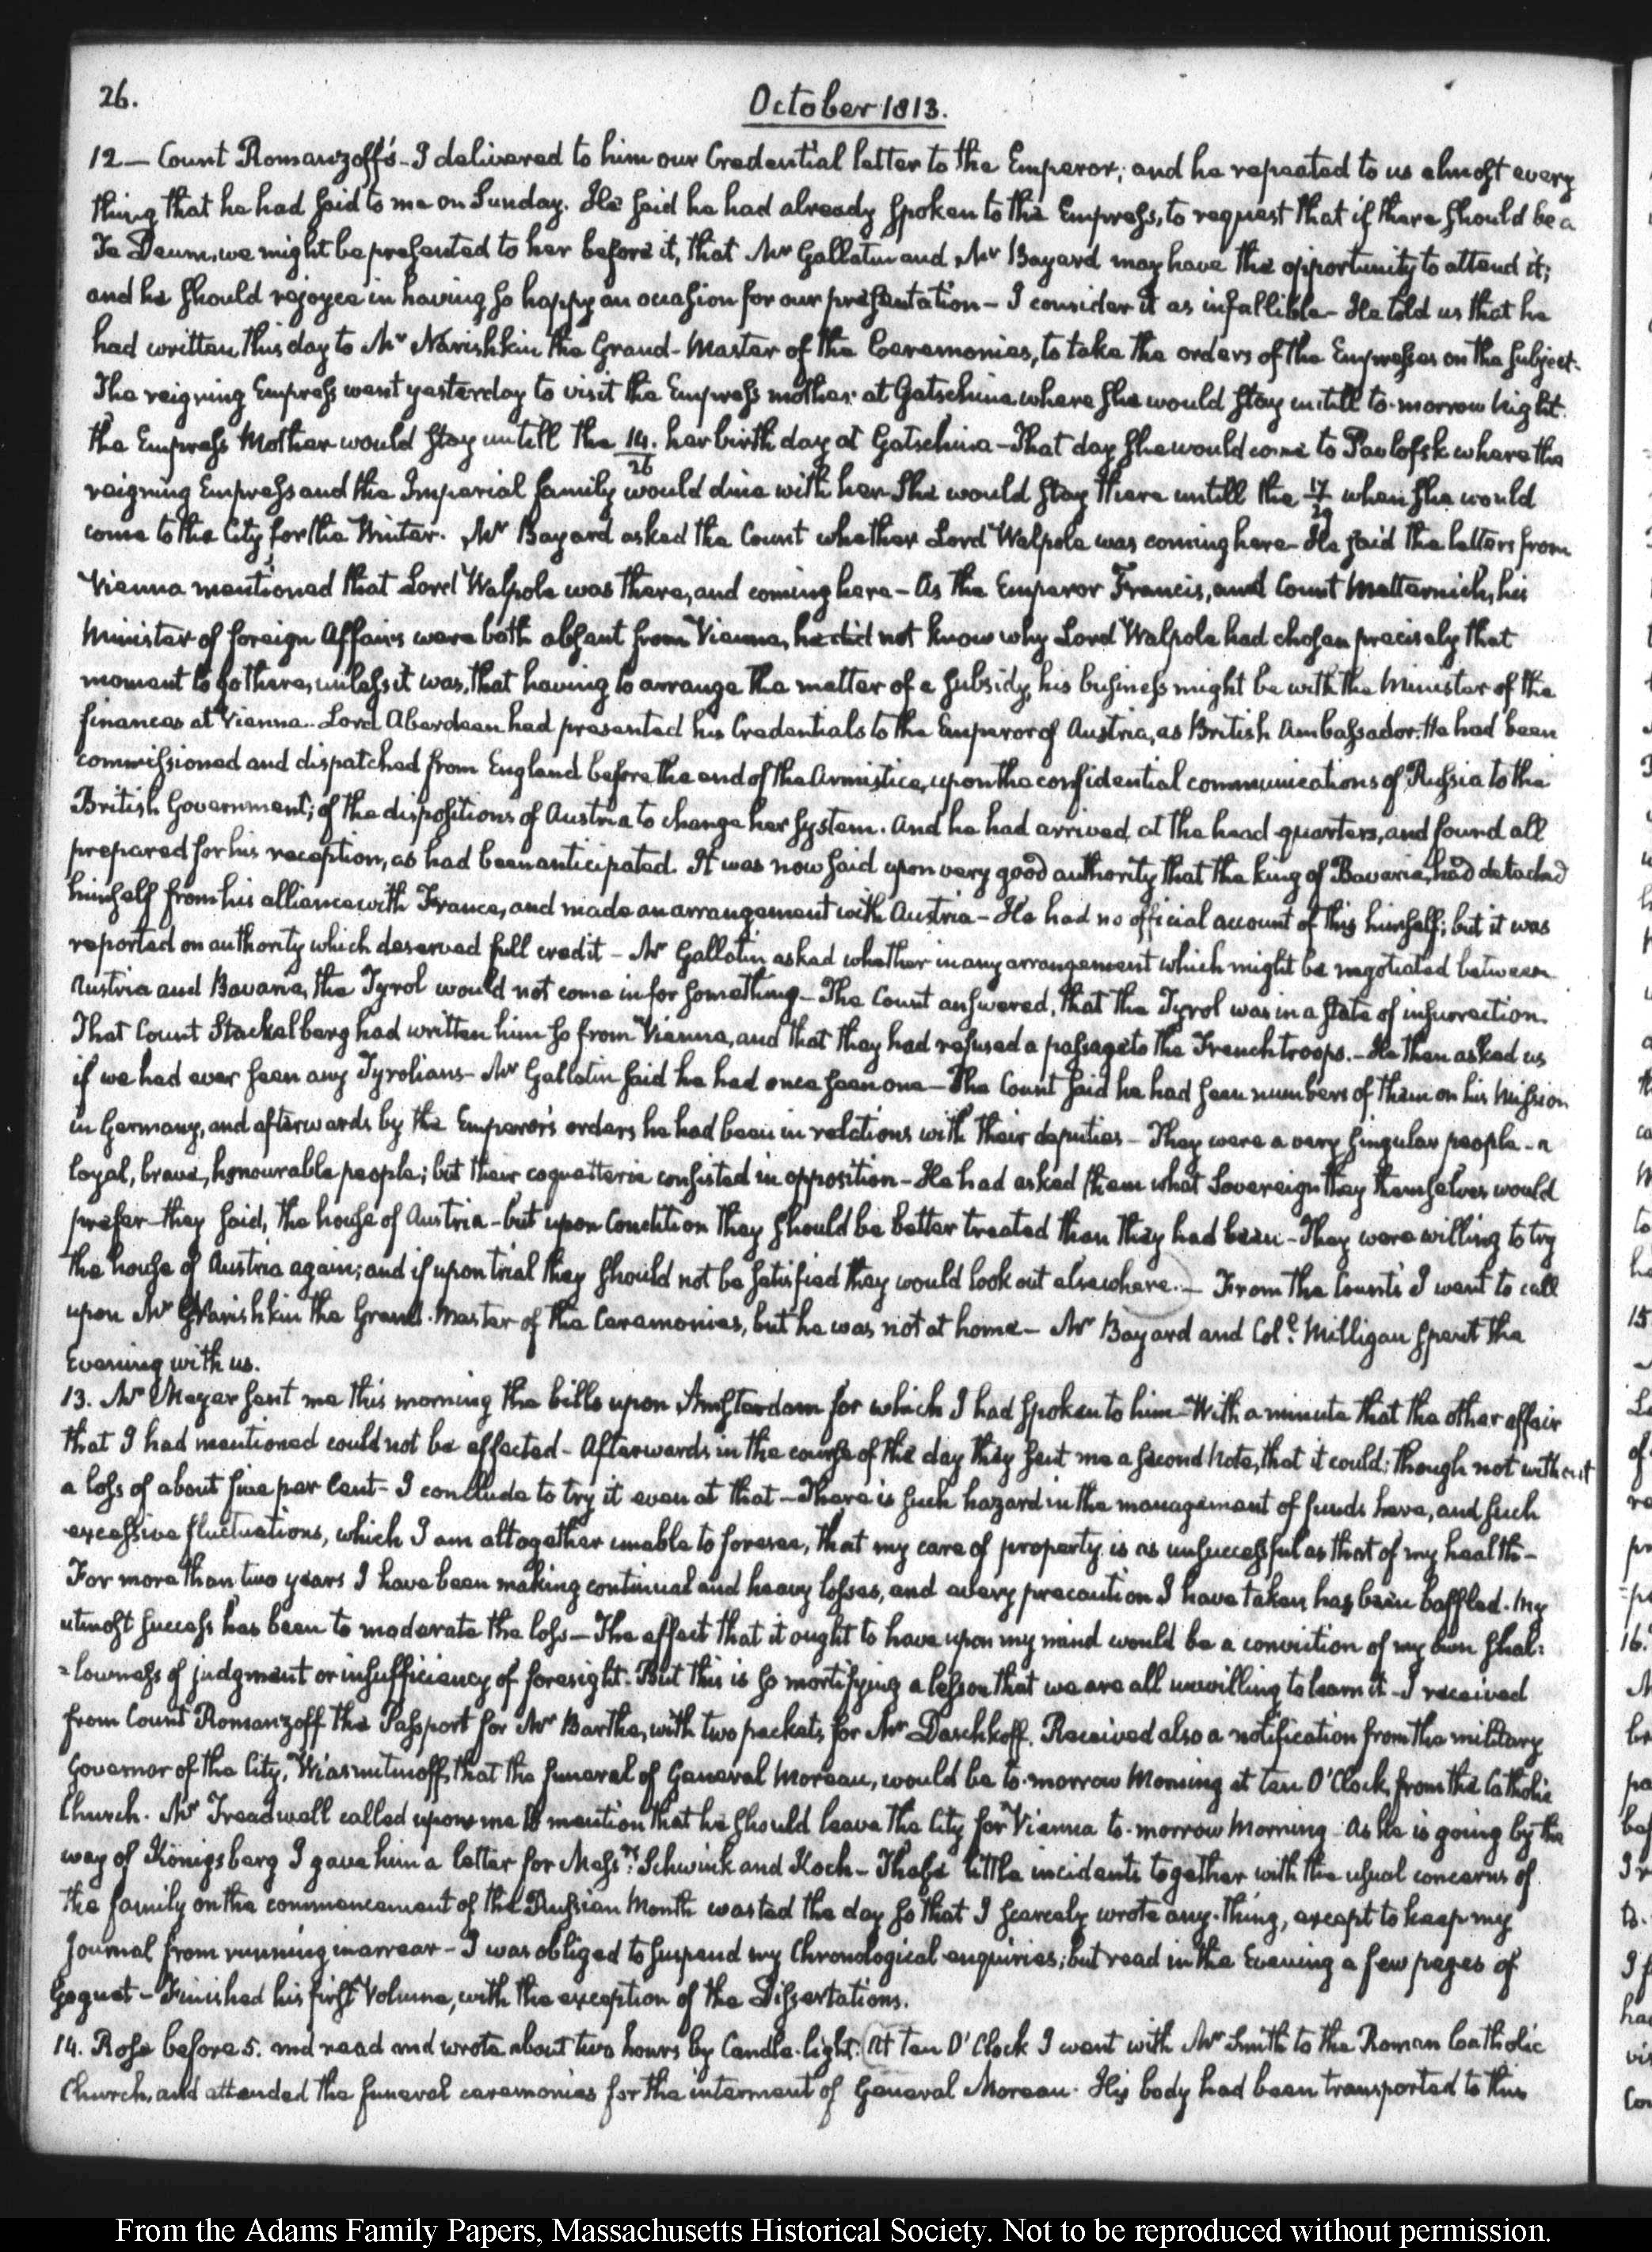 26.
October 1813.
12 — Count Romanzoff's - I delivered to him our Credential letter to the Emperor; and he repeated to us almost every
thing that he had said to me on Sunday. He said he had already spoken to the Empress, to request that if there should be a
Te Deum, we might be presented to her before it, that Mr Gallatin and Mr Bayard may have the opportunity to attend it;
and he should rejoyce in having so happy an occasion for our presentation - I consider it as infallible - He told us that he
had written this day to Mr Narishkin the Grand-Master of the Ceremonies, to take the orders of the Empresses on the subject.
The reigning Empress went yesterday to visit the Empress mother at Gatschina where she would stay untill to-morrow Night.
the Empress Mother would stay untill the 14/26. her birth day at Gatschina - That day she would come to Pavlofsk where the
reigning Empress and the Imperial family would dine with her She would stay there untill the 17/29 when she would
come to the City for the Winter. Mr Bayard asked the Count whether Lord Walpole was coming here - He said the letters from
Vienna mentioned that Lord Walpole was there, and coming here - As the Emperor Francis, and Count Metternich, his
Minister of foreign Affairs were both absent from Vienna, he did not know why Lord Walpole had chosen precisely that
moment to go there, unless it was, that having to arrange the matter of a subsidy, his business might be with the Minister of the
finances at Vienna. Lord Aberdeen had presented his Credentials to the Emperor of Austria, as British Ambassador. He had been
commissioned and dispatched from England before the end of the Armistice, upon the confidential communications of Russia to the
British Government; of the dispositions of Austria to change her system. And he had arrived at the head-quarters, and found all
prepared for his reception, as had been anticipated. It was now said upon very good authority that the king of Bavaria, had detached
himself from his alliance with France, and made an arrangement with Austria - He had no official account of this himself; but it was
reported on authority which deserved full credit - Mr Gallatin asked whether in any arrangement which might be negotiated between
Austria and Bavaria, the Tyrol would not come in for something - The Count answered, that the Tyrol was in a state of insurrection.
That Count Stackelberg had written him so from Vienna, and that they had refused a passage to the French troops. - He then asked us
if we had ever seen any Tyrolians - Mr Gallatin said he had once seen one - The Count said he had seen numbers of them on his Mission
in Germany, and afterwards by the Emperor's orders he had been in relations with their deputies - They were a very singular people - a
loyal, brave, honourable people; but their coquetterie consisted in opposition - He had asked them what Sovereign they themselves would
prefer - they said, the house of Austria - but upon Condition they should be better treated than they had been - They were willing to try
the house of Austria again; and if upon trial they should not be satisfied they would look out elsewhere. - From the Count's I went to call
upon Mr Narishkin the Grand-Master of the Ceremonies, but he was not at home - Mr Bayard and Coll. Milligan spent the
Evening with us.
13. Mr Meyer sent me this morning the bills upon Amsterdam for which I had spoken to him - With a minute that the other affair
that I had mentioned could not be effected - Afterwards in the course of the day they sent me a second Note, that it could; though not without
a loss of about five per Cent - I conclude to try it even at that - There is such hazard in the management of funds here, and such
excessive fluctuations, which I am altogether unable to foresee, that my care of property is as unsuccessful as that of my health -
For more than two years I have been making continual and heavy losses, and every precaution I have taken has been baffled. My
utmost success has been to moderate the loss - The effect that it ought to have upon my mind would be a conviction of my own shal=
=lowness of judgment or insufficiency of foresight. But this is so mortifying a lesson that we are all unwilling to learn it - I received
from Count Romanzoff the Passport for Mr Barthe, with two packets, for Mr Daschkoff. Received also a notification from the military
Governor of the City, Wiasmitinoff, that the funeral of General Moreau, would be to-morrow Morning at ten O'Clock, from the Catholic
Church. Mr Treadwell called upon me to mention that he should leave the City for Vienna to-morrow Morning. As he is going by the
way of Königsberg I gave him a letter for Messrs Schwink and Koch - These little incidents together with the usual concerns of
the family on the commencement of the Russian Month wasted the day so that I scarcely wrote any-thing, except to keep my
Journal from running in arrear - I was obliged to suspend my Chronological enquiries; but read in the Evening a few pages of
Goguet - Finished his first Volume, with the exception of the Dissertations.
14. Rose before 5. and read and wrote about two hours by Candle-light. At ten O'Clock I went with Mr Smith to the Roman Catholic
Church, and attended the funeral ceremonies for the interment of General Moreau. His body had been transported to this
From the Adams Family Papers, Massachusetts Historical Society. Not to be reproduced without permission.